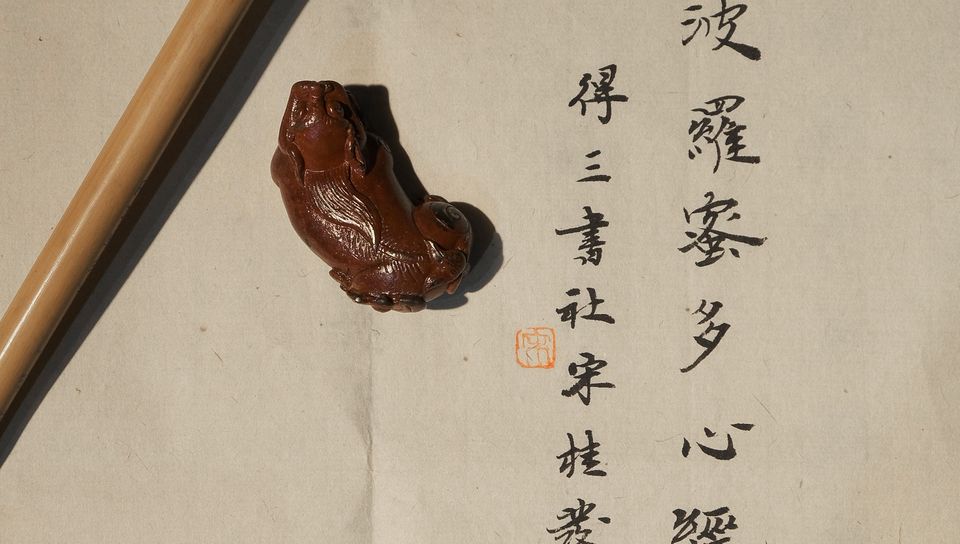 波羅蜜多心經
得三書社宋桂發